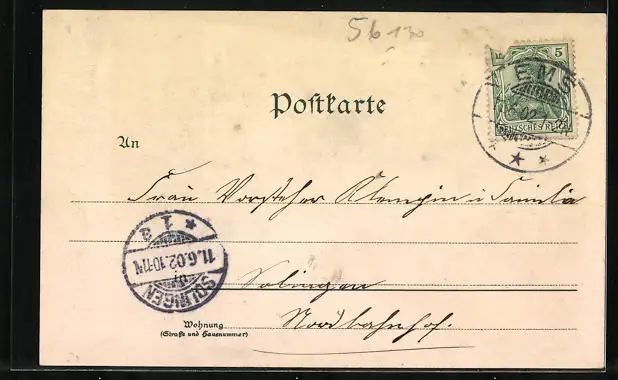 56 130
5
EMS
DEUTSCHES REICH
Postkarte
An
Frau Vorsteher Klempin u. Familie
* 1 a
11.6.02.10-11V.
SOLINGEN
in
Solingen
Nordbahnhof.
Wohnung
(Straße und Hausnummer)